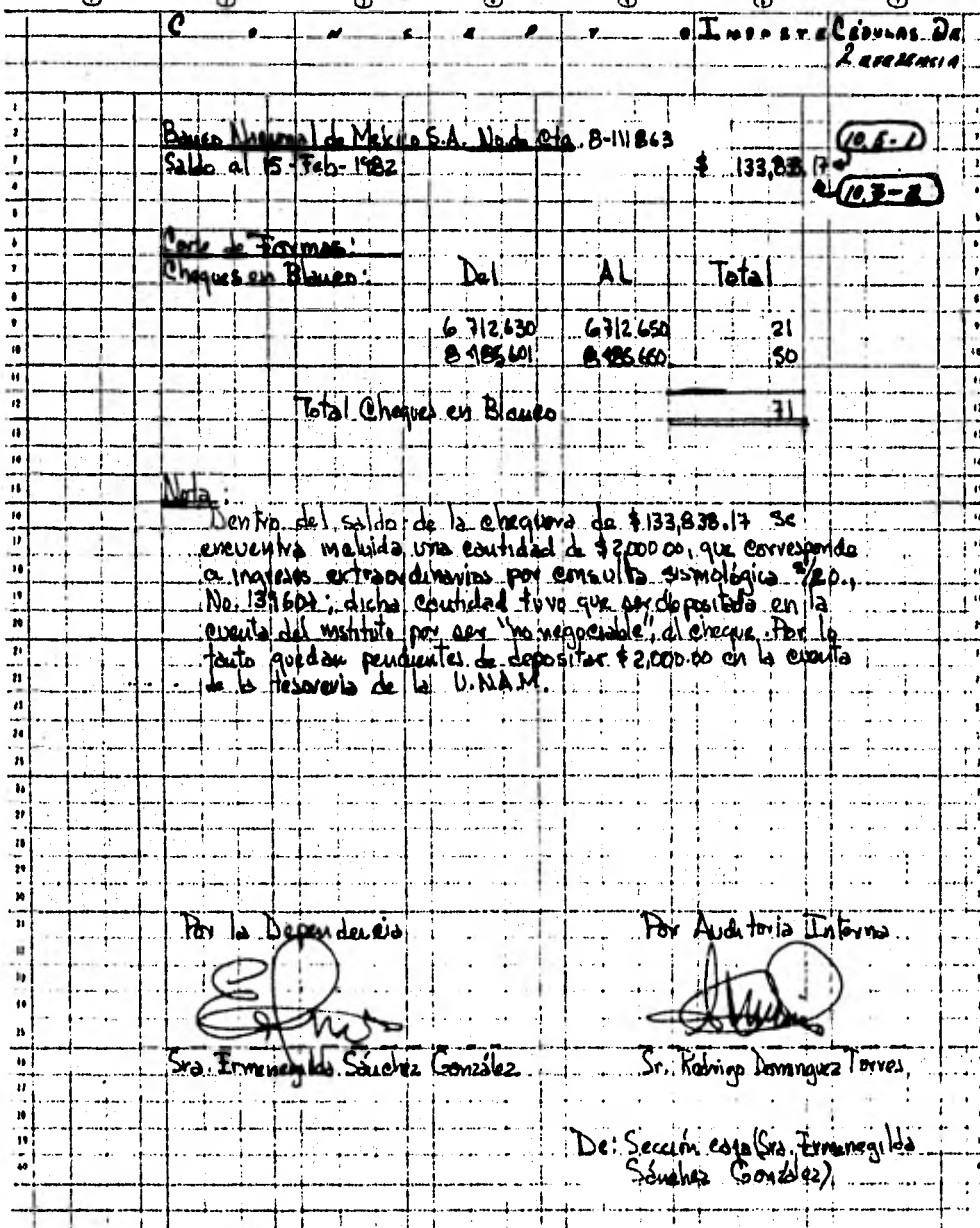 CONCEPTO IMPORTE CÉDULAS DE
REFERENCIA
Banco Nacional de México S.A. No. de Cta. 8-111863 10.5-1
Saldo al 15-Feb-1982 $ 133,838.17
10.3-2
Corte de Formas:
Cheques en Blanco: Del AL Total
6 712630 6712650 21
8 485601 8 485650 50
Total Cheques en Blanco 71
Nota:
Dentro del saldo de la chequera de $133,838.17 se
encuentra incluida una cantidad de $2,000.00, que corresponde
a ingresos extraordinarios por consulta sismológica
No. 139601; dicha cantidad tuvo que ser depositada en la
cuenta del instituto por ser "no negociable", el cheque. Por lo
tanto quedan pendientes de depositar $2,000.00 en la cuenta
de la tesorería de la U.N.A.M.
Por la Dependencia Por Auditoria Interna
Sra. Ermenegilda Sánchez González Sr. Rodrigo Dominguez Torres,
De: Sección caja (Sra. Ermenegilda
Sánchez González)